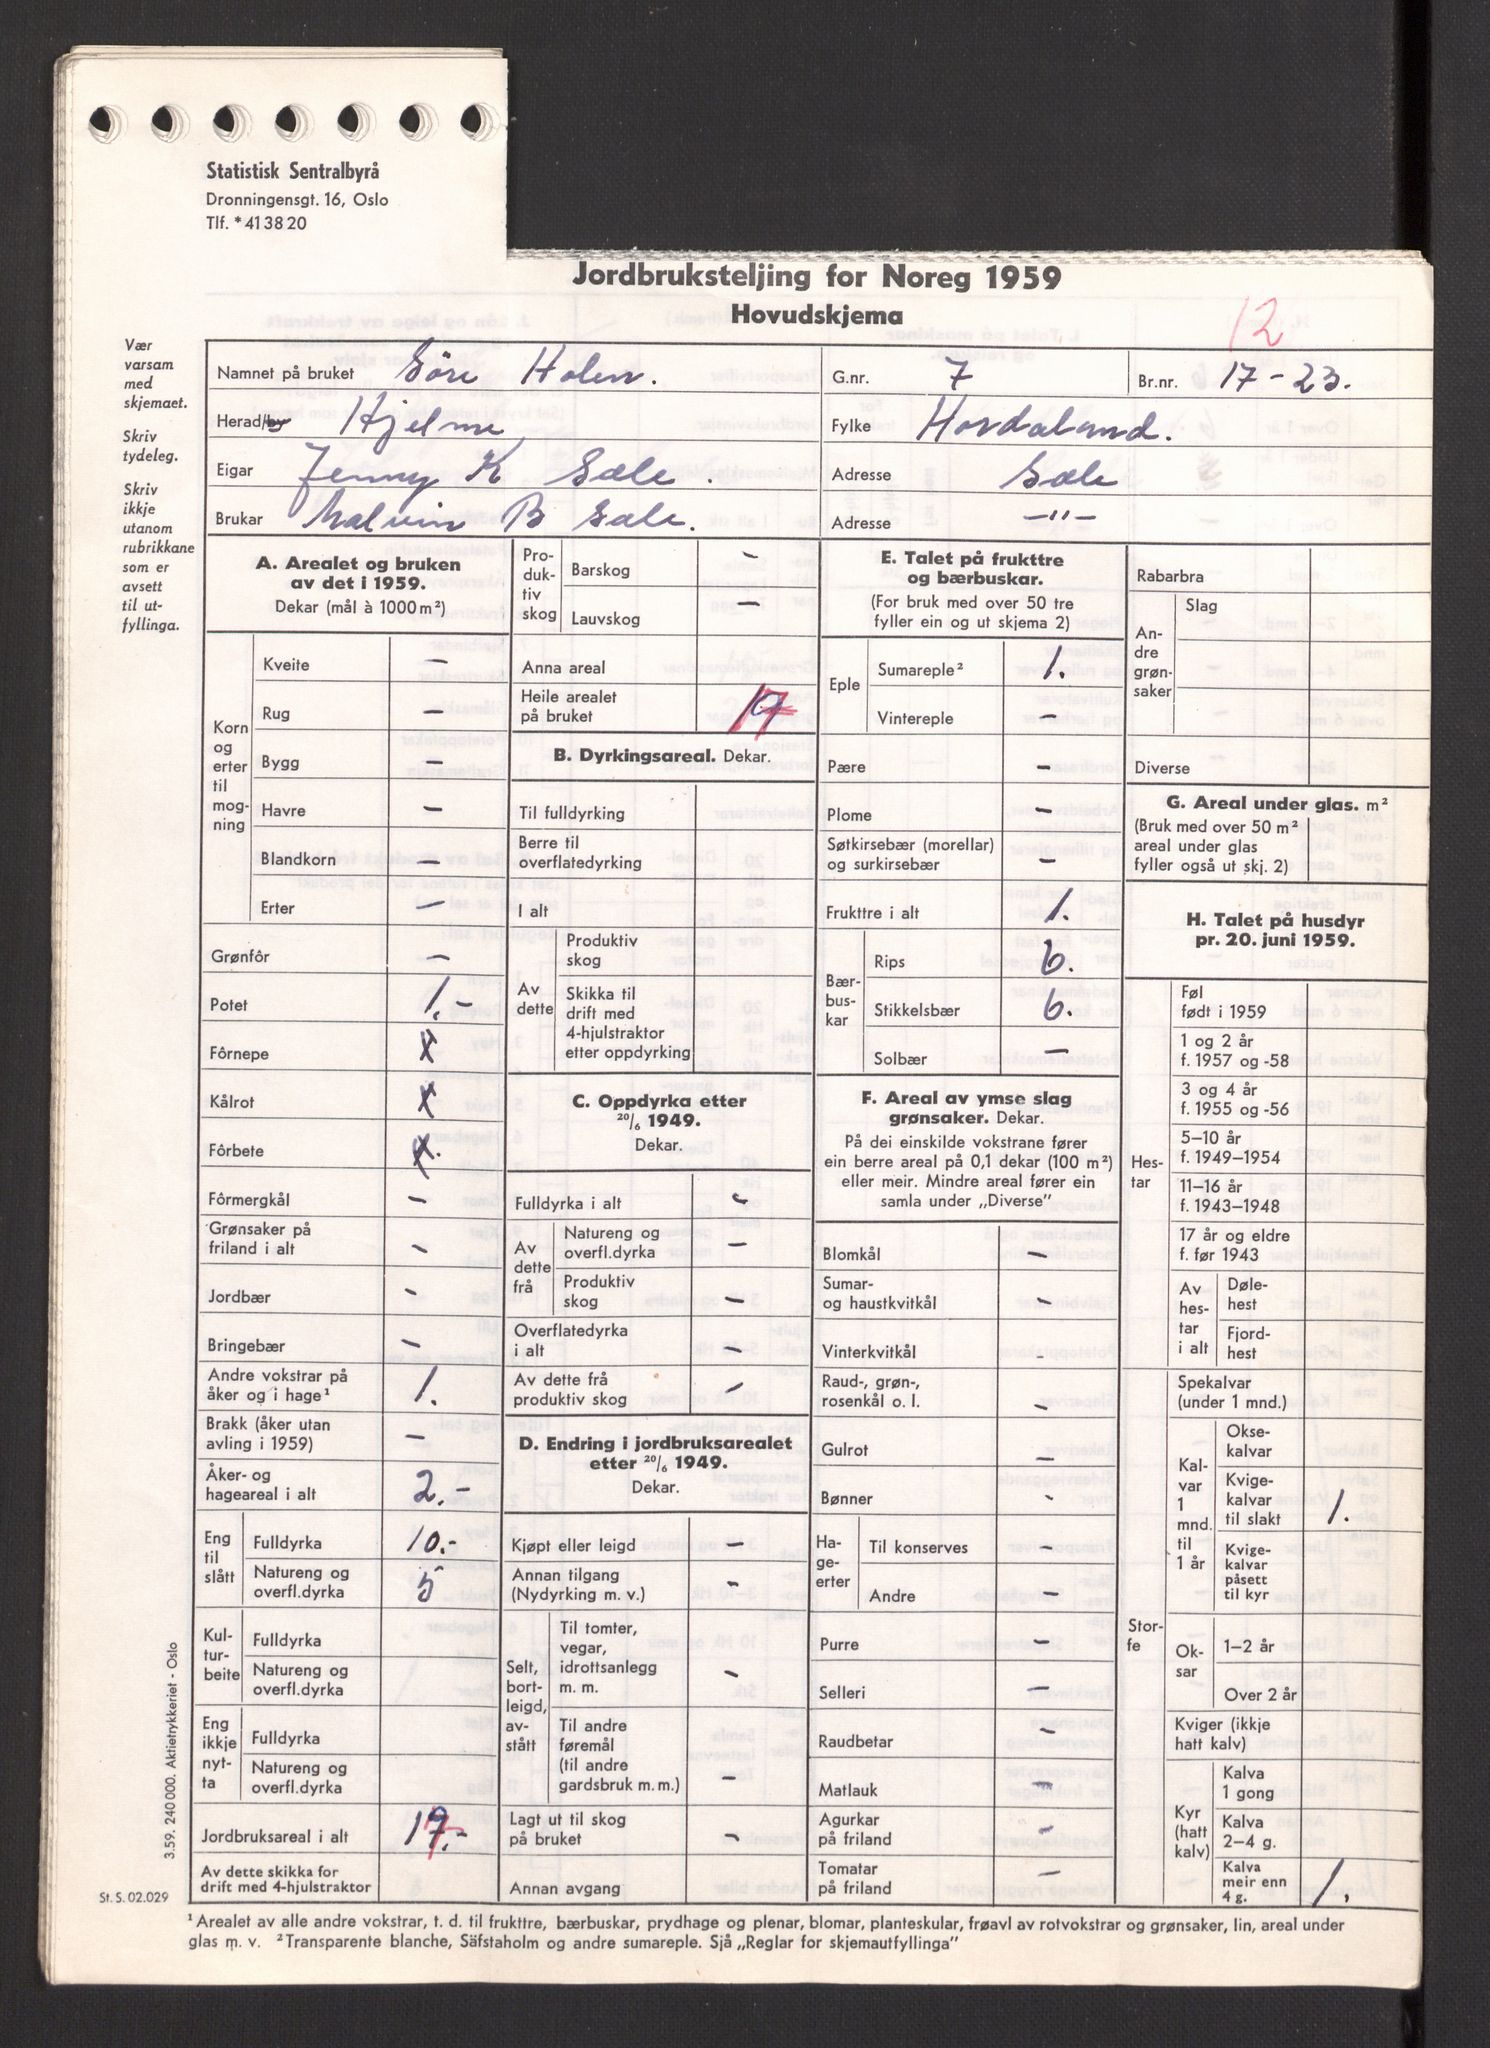 Statistisk Sentralbyrå
Dronningensgt. 16, Oslo
Tlf. *41 38 20
Jordbruksteljing for Noreg 1959
Hovudskjema
12
Vær
varsam
med
skjemaet.
Skriv
tydeleg.
Skriv
ikkje
utanom
rubrikkane
som er
avsett
til ut-
fyllinga.
Namnet på bruket Söre Holen. G.nr. 7 Br.nr. 17-23.
Herad/by Hjelme Fylke Hordaland.
Eigar Jenny K Sæle. Adresse Sæle
Brukar Malvin B Sæle. Adresse -"-
A. Arealet og bruken
av det i 1959.
Dekar (mål à 1000 m²)
Korn
og
erter
til
mog-
ning
Kveite –
Rug –
Bygg –
Havre –
Blandkorn –
Erter –
Grønfôr –
Potet 1.-
Fôrnepe X
Kålrot X
Fôrbete X.
Fôrmergkål –
Grønsaker på
friland i alt –
Jordbær –
Bringebær –
Andre vokstrar på
åker og i hage¹ 1.
Brakk (åker utan
avling i 1959) –
Åker- og
hageareal i alt 2.-
Eng
til
slått
Fulldyrka 10.-
Natureng og
overfl.dyrka 5
Kul-
tur-
beite
Fulldyrka
Natureng og
overfl.dyrka
Eng
ikkje
nyt-
ta
Fulldyrka
Natureng og
overfl.dyrka
Jordbruksareal i alt 17.-
Av dette skikka for
drift med 4-hjulstraktor
Pro-
duk-
tiv
skog
Barskog –
Lauvskog –
Anna areal
Heile arealet
på bruket 17
B. Dyrkingsareal. Dekar.
Til fulldyrking
Berre til
overflatedyrking
I alt
Av
dette
Produktiv
skog
Skikka til
drift med
4-hjulstraktor
etter oppdyrking
C. Oppdyrka etter
20/6 1949.
Dekar.
Fulldyrka i alt –
Av
dette
frå
Natureng og
overfl.dyrka –
Produktiv
skog –
Overflatedyrka
i alt –
Av dette frå
produktiv skog –
D. Endring i jordbruksarealet
etter 20/6 1949.
Dekar.
Kjøpt eller leigd –
Annan tilgang
(Nydyrking m. v.) –
Selt,
bort-
leigd,
av-
stått
Til tomter,
vegar,
idrottsanlegg
m. m. –
Til andre
føremål
(til andre
gardsbruk m. m.) –
Lagt ut til skog
på bruket –
Annan avgang
E. Talet på frukttre
og bærbuskar.
(For bruk med over 50 tre
fyller ein og ut skjema 2)
Eple
Sumareple² 1.
Vintereple –
Pære –
Plome –
Søtkirsebær (morellar)
og surkirsebær –
Frukttre i alt 1.
Bær-
bus-
kar
Rips 6.
Stikkelsbær 6.
Solbær –
F. Areal av ymse slag
grønsaker. Dekar.
På dei einskilde vokstrane fører
ein berre areal på 0,1 dekar (100 m²)
eller meir. Mindre areal fører ein
samla under „Diverse”
Blomkål –
Sumar-
og haustkvitkål –
Vinterkvitkål –
Raud-, grøn-,
rosenkål o. l. –
Gulrot –
Bønner –
Ha-
ge-
erter
Til konserves –
Andre –
Purre –
Selleri –
Raudbetar –
Matlauk –
Agurkar
på friland –
Tomatar
på friland –
Rabarbra
An-
dre
grøn-
saker
Slag
Diverse
G. Areal under glas. m²
(Bruk med over 50 m²
areal under glas
fyller også ut skj. 2)
H. Talet på husdyr
pr. 20. juni 1959.
Hes-
tar
Føl
født i 1959
1 og 2 år
f. 1957 og -58
3 og 4 år
f. 1955 og -56
5–10 år
f. 1949–1954
11–16 år
f. 1943–1948
17 år og eldre
f. før 1943
Av
hes-
tar
i alt
Døle-
hest
Fjord-
hest
Stor-
fe
Spekalvar
(under 1 mnd.)
Kal-
var
1
mnd.
til
1 år
Okse-
kalvar
Kvige-
kalvar
til slakt 1.
Kvige-
kalvar
påsett
til kyr
Ok-
sar
1–2 år
Over 2 år
Kviger (ikkje
hatt kalv)
Kyr
(hatt
kalv)
Kalva
1 gong
Kalva
2–4 g.
Kalva
meir enn
4 g. 1.
3.59. 240 000. Aktietrykkeriet - Oslo
St. S. 02.029
¹ Arealet av alle andre vokstrar, t. d. til frukttre, bærbuskar, prydhage og plenar, blomar, planteskular, frøavl av rotvokstrar og grønsaker, lin, areal under
glas m. v. ² Transparente blanche, Säfstaholm og andre sumareple. Sjå „Reglar for skjemautfyllinga”